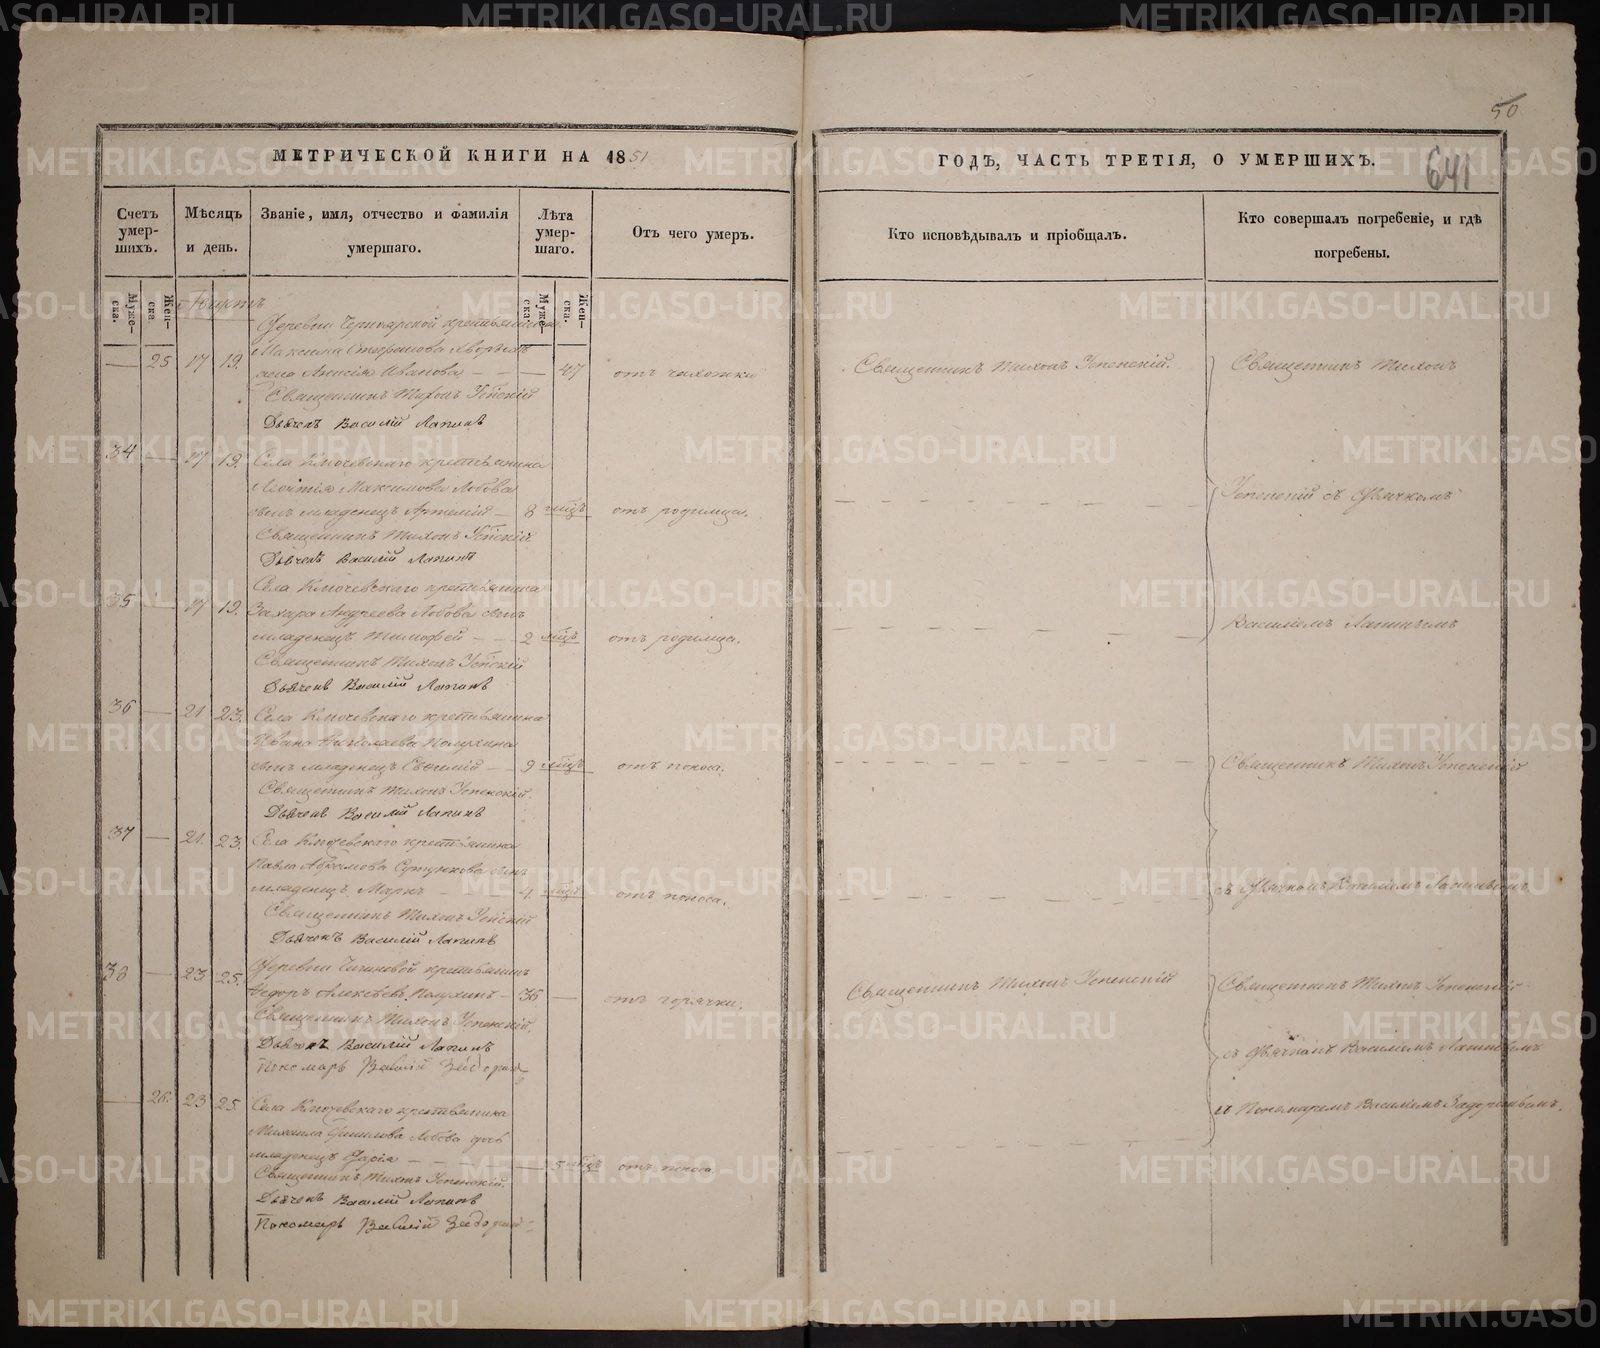 50
641
МЕТРИЧЕСКОЙ КНИГИ НА 1851
ГОДЪ, ЧАСТЬ ТРЕТІЯ, О УМЕРШИХЪ.
Счетъ умер-шихъ.
Мѣсяцъ и день.
Званіе, имя, отчество и фамилія умершаго.
Лѣта умер-шаго.
Отъ чего умеръ.
Кто исповѣдывалъ и пріобщалъ.
Кто совершалъ погребеніе, и гдѣ погребены.
Муже-ска.
Жен-ска.
Муже-ска.
Жен-ска.
Августъ
Деревни крестьянина
Максима
— 25 17 19. жена Анисія Иванова — — 47 отъ чахотки Священникъ Тихонъ Успенскій. Священникъ Тихонъ
Священникъ Тихонъ Успскій
Дьячекъ Василій Лапинъ
34 — 17 19. Села Ключевскаго крестьянина
Максимова Лобова
сынъ младенецъ Артемій — 8 мцъ отъ родимца. Успенскій съ Дьячкомъ
Священникъ Тихонъ Успскій
Дьячекъ Василій Лапинъ
Села Ключевскаго крестьянина
35 — 17 19. Захара Андреева Лобова сынъ
младенецъ Тимофей — — 2 мцъ отъ родимца. Василіемъ Лапинымъ
Священникъ Тихонъ Успскій
Дьячекъ Василій Лапинъ
36 — 21 23. Села Ключевскаго крестьянина
Ивана Николаева Полухина
сынъ младенецъ Евѳимій — 9 мцъ отъ поноса. Священникъ Тихонъ Успенскій
Священникъ Тихонъ Успенскій.
Дьячекъ Василій Лапинъ
37 — 21. 23. Села Ключевскаго крестьянина
Павла Абрамова сынъ
младенецъ Маркъ — 4 мцъ отъ поноса. съ Дьячкомъ Василіемъ Лапинымъ
Священникъ Тихонъ Успскій
Дьячекъ Василій Лапинъ
38 — 23 25. Деревни крестьянинъ
Ѳедоръ Алексѣевъ Полухинъ — 36 — отъ горячки. Священникъ Тихонъ Успенскій Священникъ Тихонъ Успенскій
Священникъ Тихонъ Успенскій.
Дьячекъ Василій Лапинъ съ Дьячкомъ Василіемъ Лапинымъ
Пономарь Василій
— 26. 23 25. Села Ключевскаго крестьянина и Пономаремъ Василіемъ
Михаила Лобова дочь
младенецъ Дарія — — 5 мцъ отъ поноса
Священникъ Тихонъ Успенскій.
Дьячекъ Василій Лапинъ
Пономарь Василій
METRIKI.GASO-URAL.RU